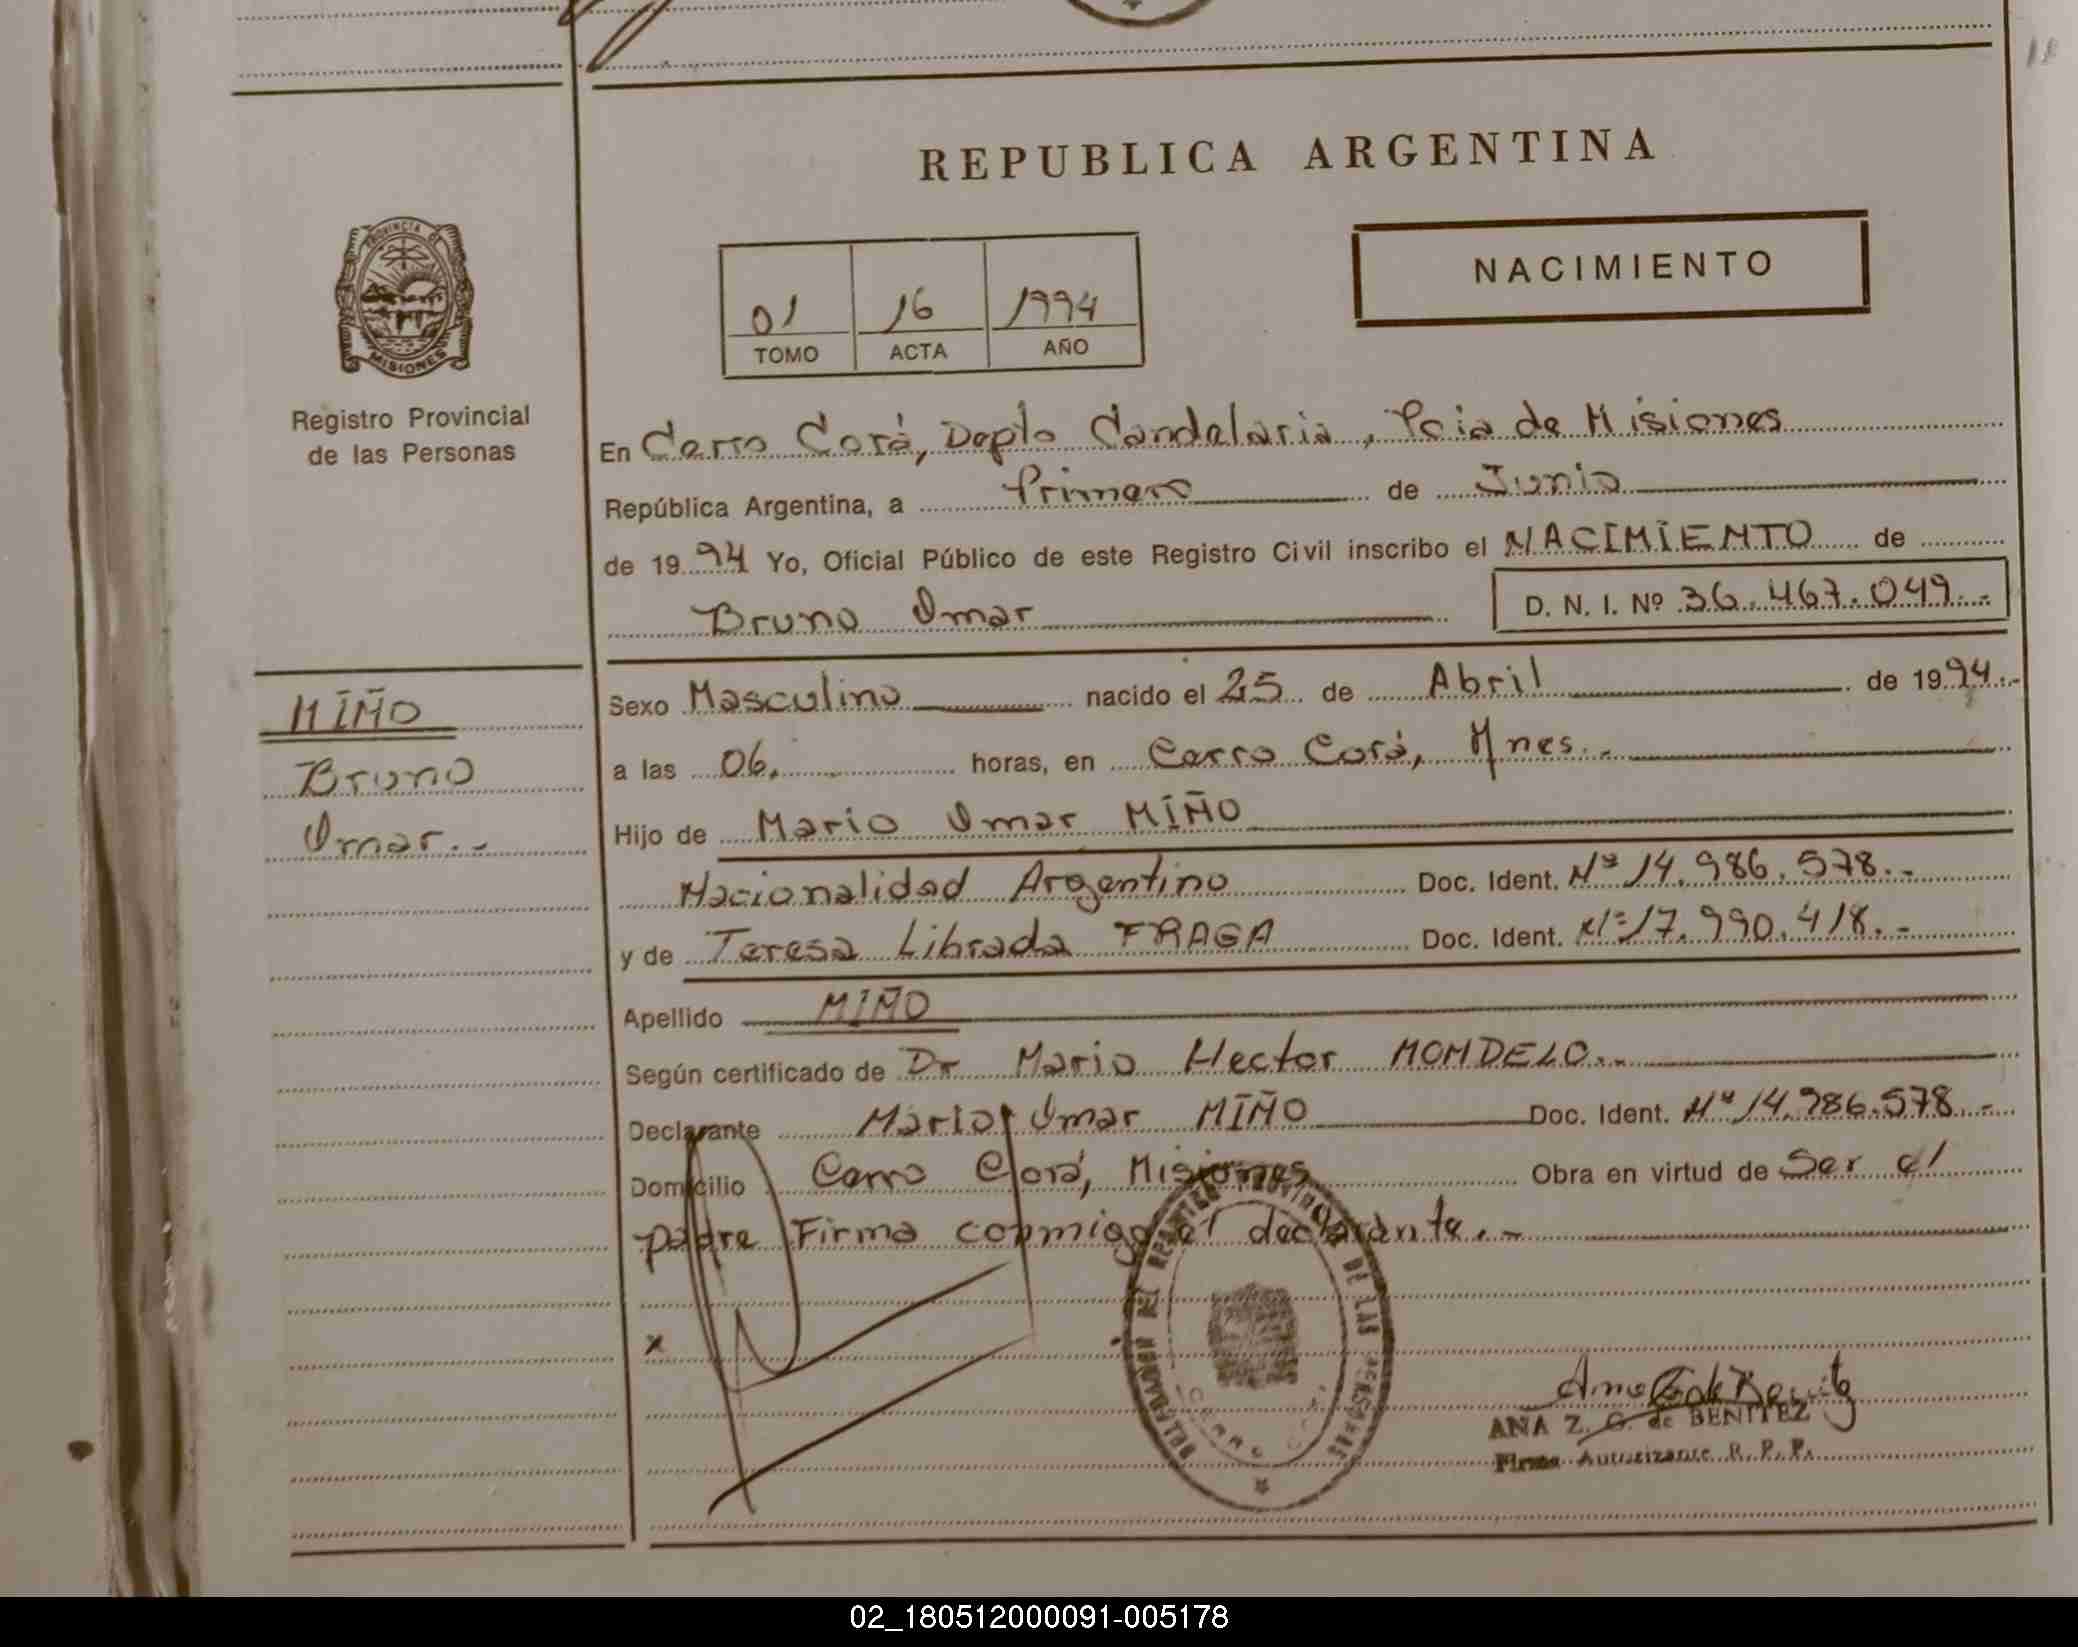 REPUBLICA ARGENTINA
PROVINCIA DE
MISIONES
Registro Provincial
de las Personas
NACIMIENTO
01 16 1994
TOMO ACTA AÑO
En Cerro Corá, Depto Candelaria, Pcia de Misiones
República Argentina, a Primero de Junio
de 1994 Yo, Oficial Público de este Registro Civil inscribo el NACIMIENTO de
Bruno Omar D. N. I. Nº 36.467.049.-
MIÑO
Bruno
Omar.-
Sexo Masculino nacido el 25 de Abril de 1994.-
a las 06. horas, en Cerro Corá, Mnes.-
Hijo de Mario Omar MIÑO
Nacionalidad Argentino Doc. Ident. Nº 14.986.578.-
y de Teresa Librada FRAGA Doc. Ident. Nº 17.990.418.-
Apellido MIÑO
Según certificado de Dr Mario Hector MONDELO.-
Declarante Mario Omar MIÑO Doc. Ident. Nº 14.986.578.-
Domicilio Cerro Corá, Misiones Obra en virtud de Ser el
padre Firma conmigo el declarante.-
x
DELEGACION DEL REGISTRO PROVINCIAL DE LAS PERSONAS
CERRO CORA
ANA Z. G. de BENITEZ
Firma Autorizante R. P. P.
02_180512000091-005178